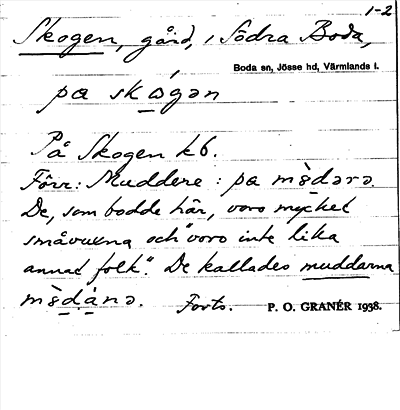 1-2
Skogen, gård, i Södra Boda,
Boda sn, Jösse hd, Värmlands l.
pa skógən
På Skogen kb.
Förr: Muddere : pa mùdərə
De, som bodde här, voro mycket
småvuxna och "voro inte lika
annat folk". De kallades muddarna
mùdànə. Forts. P. O. GRANÉR 1938.